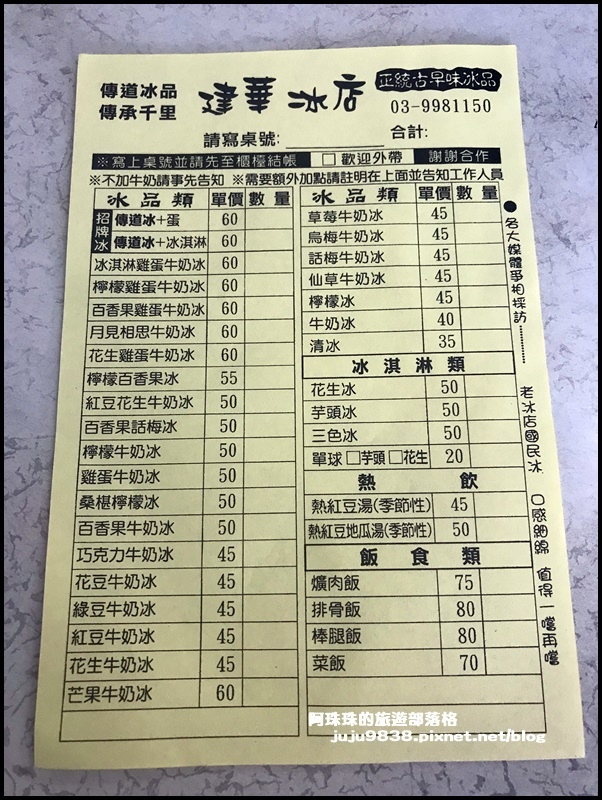 傳道冰品
傳承千里
建華冰店
正統古早味冰品
03-9981150
請寫桌號:
合計:
※寫上桌號並請先至櫃檯結帳 □ 歡迎外帶 謝謝合作
※不加牛奶請事先告知 ※需要額外加點請註明在上面並告知工作人員
冰品類 單價 數量
招牌冰
傳道冰+蛋 60
傳道冰+冰淇淋 60
冰淇淋雞蛋牛奶冰 60
檸檬雞蛋牛奶冰 60
百香果雞蛋牛奶冰 60
月見相思牛奶冰 60
花生雞蛋牛奶冰 60
檸檬百香果冰 55
紅豆花生牛奶冰 50
百香果話梅冰 50
檸檬牛奶冰 50
雞蛋牛奶冰 50
桑椹檸檬冰 50
百香果牛奶冰 50
巧克力牛奶冰 45
花豆牛奶冰 45
綠豆牛奶冰 45
紅豆牛奶冰 45
花生牛奶冰 45
芒果牛奶冰 60
冰品類 單價 數量
草莓牛奶冰 45
烏梅牛奶冰 45
話梅牛奶冰 45
仙草牛奶冰 45
檸檬冰 45
牛奶冰 40
清冰 35
冰淇淋類
花生冰 50
芋頭冰 50
三色冰 50
單球 □芋頭 □花生 20
熱飲
熱紅豆湯(季節性) 45
熱紅豆地瓜湯(季節性) 50
飯食類
爌肉飯 75
排骨飯 80
棒腿飯 80
菜飯 70
●各大媒體爭相採訪………老冰店國民冰 口感細綿 值得一嚐再嚐
阿珠珠的旅遊部落格
juju9838.pixnet.net/blog